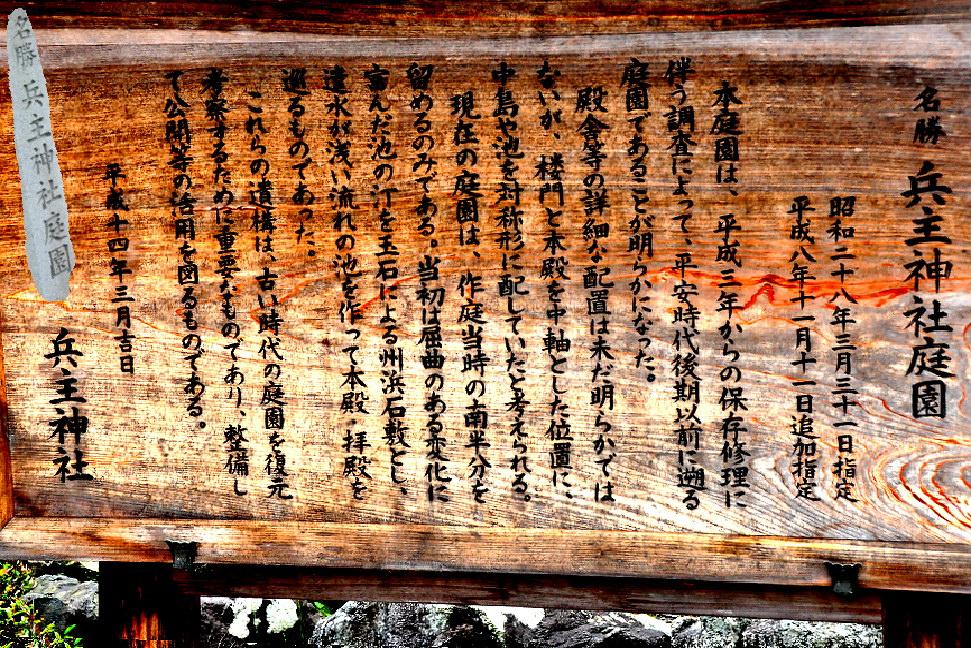 名勝 兵主神社庭園
昭和二十八年三月三十一日指定
平成八年十一月十一日追加指定
本庭園は、平成三年からの保存修理に
伴う調査によって、平安時代後期以前に遡る
庭園であることが明らかになった。
殿舎等の詳細な配置は未だ明らかでは
ないが、楼門と本殿を中軸とした位置に、
中島や池を対称形に配していたと考えられる。
現在の庭園は、作庭当時の南半分を
留めるのみである。当初は屈曲のある変化に
富んだ池の汀を玉石による州浜石敷とし、
遣水が浅い流れの池を作って本殿・拝殿を
巡るものであった。
これらの遺構は、古い時代の庭園を復元
考察するために重要なものであり、整備し
て公開等の活用を図るものである。
平成十四年三月吉日
兵主神社
名勝 兵主神社庭園